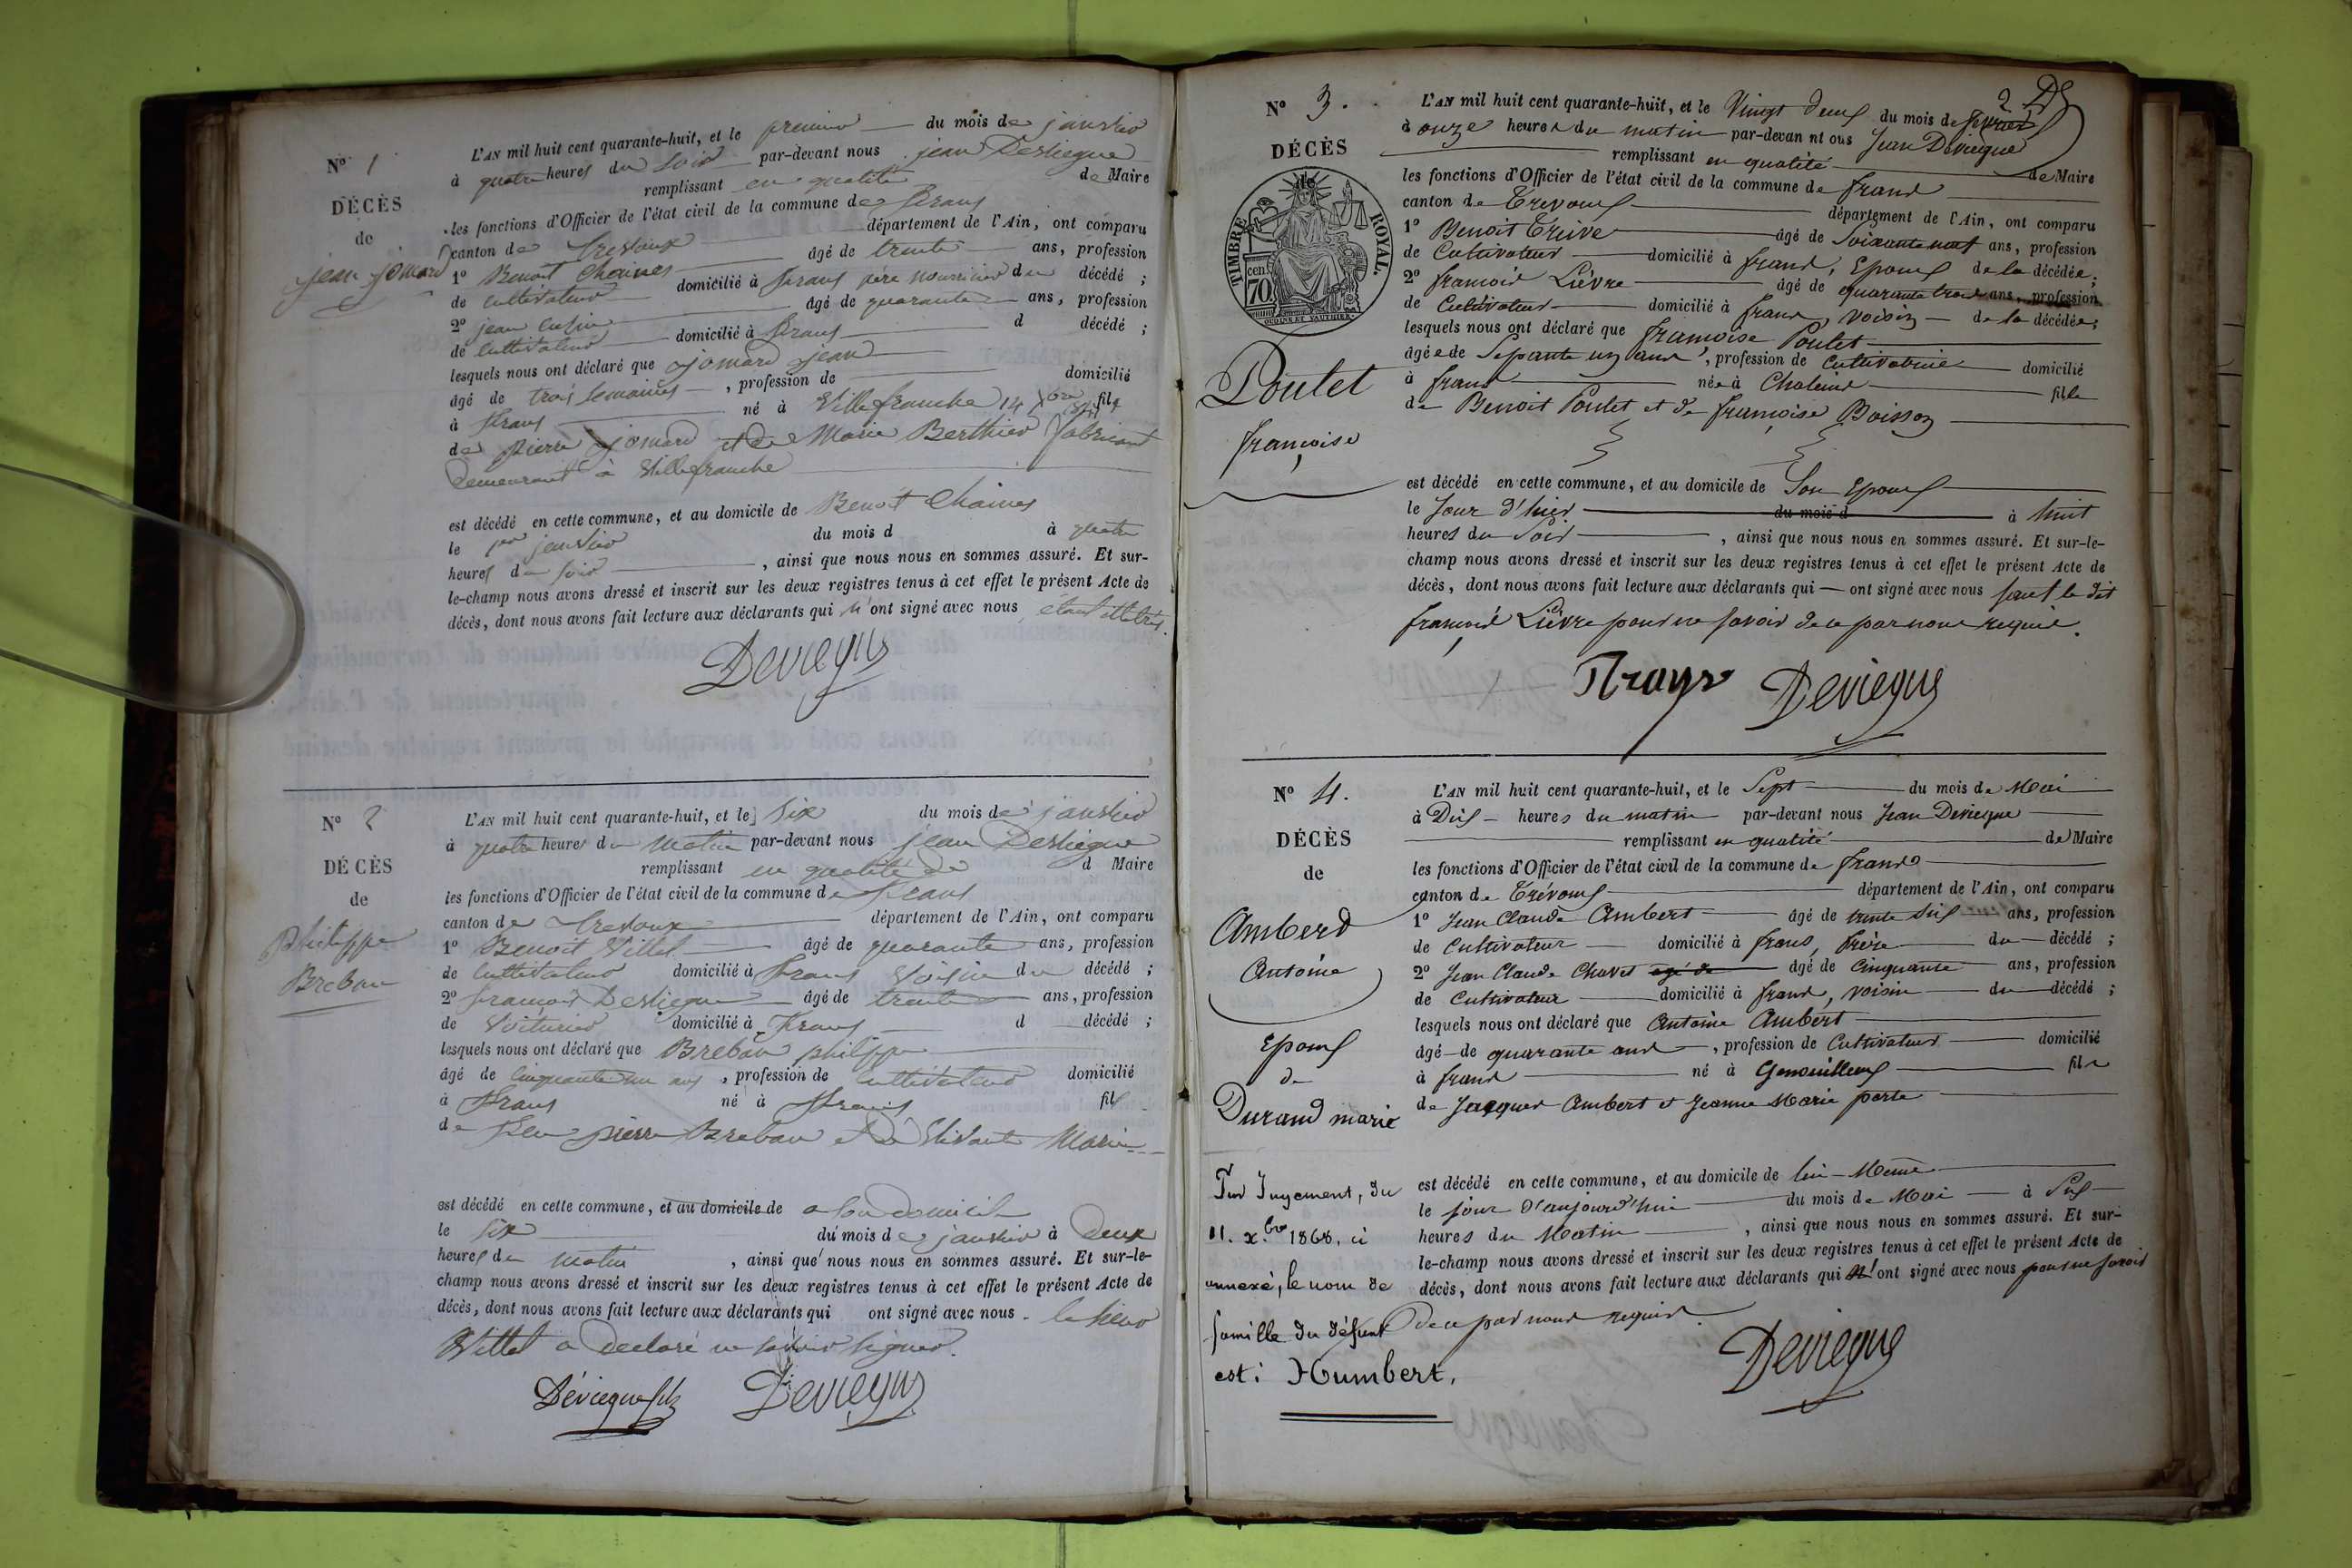 N° 1
DÉCÈS
de
jean jomard
L'AN mil huit cent quarante-huit, et le premier du mois de janvier
à quatre heures du soir par-devant nous jean Desvieque
remplissant en qualité de Maire
les fonctions d'Officier de l'état civil de la commune de frans
canton de Trevoux département de l'Ain, ont comparu
1° Benoit Chaines âgé de trente ans, profession
de cultivateur domicilié à frans père nourricier du décédé ;
2° jean âgé de quarante ans, profession
de cultivateur domicilié à frans d décédé ;
lesquels nous ont déclaré que jomard jean
âgé de trois semaines , profession de domicilié
à frans né à Villefranche 14 Xbre fils
de pierre jomard et de Marie Berthier fabricant
demeurant à Villefranche
est décédé en cette commune, et au domicile de Benoit Chaines
le 1er janvier du mois d à quatre
heures du soir , ainsi que nous nous en sommes assuré. Et sur-
le-champ nous avons dressé et inscrit sur les deux registres tenus à cet effet le présent Acte de
décès, dont nous avons fait lecture aux déclarants qui n'ont signé avec nous étant illetrés.
Devieque
N° 2
DÉCÈS
de
philippe
Breban
L'AN mil huit cent quarante-huit, et le six du mois de janvier
à quatre heures du matin par-devant nous jean Desvieque
remplissant en qualité de d Maire
les fonctions d'Officier de l'état civil de la commune de frans
canton de Trevoux département de l'Ain, ont comparu
1° Benoit Villet âgé de quarante ans, profession
de cultivateur domicilié à frans voisin du décédé ;
2° françois Desvieque âgé de trente ans, profession
de voiturier domicilié à frans d décédé ;
lesquels nous ont déclaré que Breban philippe
âgé de cinquante un ans , profession de cultivateur domicilié
à frans né à frans fils
de feu pierre Breban et de vivante Marie
est décédé en cette commune, et au domicile de a son domicile
le six du mois de janvier à deux
heures du matin , ainsi que nous nous en sommes assuré. Et sur-le-
champ nous avons dressé et inscrit sur les deux registres tenus à cet effet le présent Acte de
décès, dont nous avons fait lecture aux déclarants qui ont signé avec nous. le sieur
Villet a declaré ne savoir signer.
Dévieque fils Devieque
2
N° 3.
DÉCÈS
de
TIMBRE ROYAL.
70 cen.
Poulet
françoise
L'AN mil huit cent quarante-huit, et le Vingt deux du mois de fevrier
à onze heures du matin par-devan nt ous Jean Devieque
remplissant en qualité de Maire
les fonctions d'Officier de l'état civil de la commune de frans
canton de Trevoux département de l'Ain, ont comparu
1° Benoit Treive âgé de Soixante neuf ans, profession
de Cultivateur domicilié à frans, Epoux de la décédée ;
2° françois Lièvre âgé de quarante trois ans, profession
de Cultivateur domicilié à frans, voisin de la décédée ;
lesquels nous ont déclaré que françoise Poulet
âgée de Sepante un ans , profession de Cultivatrice domicilié
à frans née à Chaleins fille
de Benoit Poulet et de françoise Boisson
est décédé en cette commune, et au domicile de Son Epoux
le Jour d'hier du mois d à huit
heures du Soir , ainsi que nous nous en sommes assuré. Et sur-le-
champ nous avons dressé et inscrit sur les deux registres tenus à cet effet le présent Acte de
décès, dont nous avons fait lecture aux déclarants qui — ont signé avec nous sauf le dit
françois Lièvre pour ne savoir de ce par nous requis.
Devieque
N° 4.
DÉCÈS
de
Amberd
Antoine
Epoux
de
Durand marie
Par Jugement, du
11. xbre 1868. ci
annexé, le nom de
famille du défunt
est : Humbert.
L'AN mil huit cent quarante-huit, et le Sept du mois de Mai
à Dix heures du matin par-devant nous Jean Devieque
remplissant en qualité de Maire
les fonctions d'Officier de l'état civil de la commune de frans
canton de Trévoux département de l'Ain, ont comparu
1° Jean Claude Ambert âgé de trente six ans, profession
de Cultivateur domicilié à frans, frère du décédé ;
2° Jean Claude Chavet agé de âgé de Cinquante ans, profession
de Cultivateur domicilié à frans, voisin du décédé ;
lesquels nous ont déclaré que Antoine Ambert
âgé de quarante ans , profession de Cultivateur domicilié
à frans né à Genouilleux fils
de Jacques Ambert et Jeanne Marie perte
est décédé en cette commune, et au domicile de lui-Meme
le jour d'aujourd'hui du mois de Mai à Six
heures du Matin , ainsi que nous nous en sommes assuré. Et sur-
le-champ nous avons dressé et inscrit sur les deux registres tenus à cet effet le présent Acte de
décès, dont nous avons fait lecture aux déclarants qui n'ont signé avec nous pour ne savoir
de ce par nous requis.
Devieque